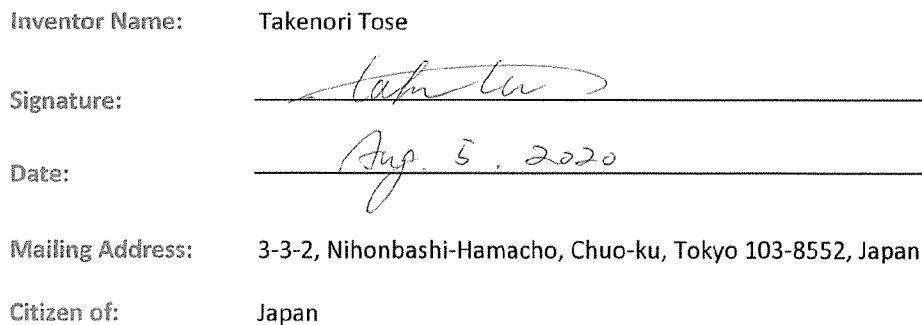 Inventor Name: Takenori Tose
Signature:
Date: Aug. 5. 2020
Mailing Address: 3-3-2, Nihonbashi-Hamacho, Chuo-ku, Tokyo 103-8552, Japan
Citizen of: Japan